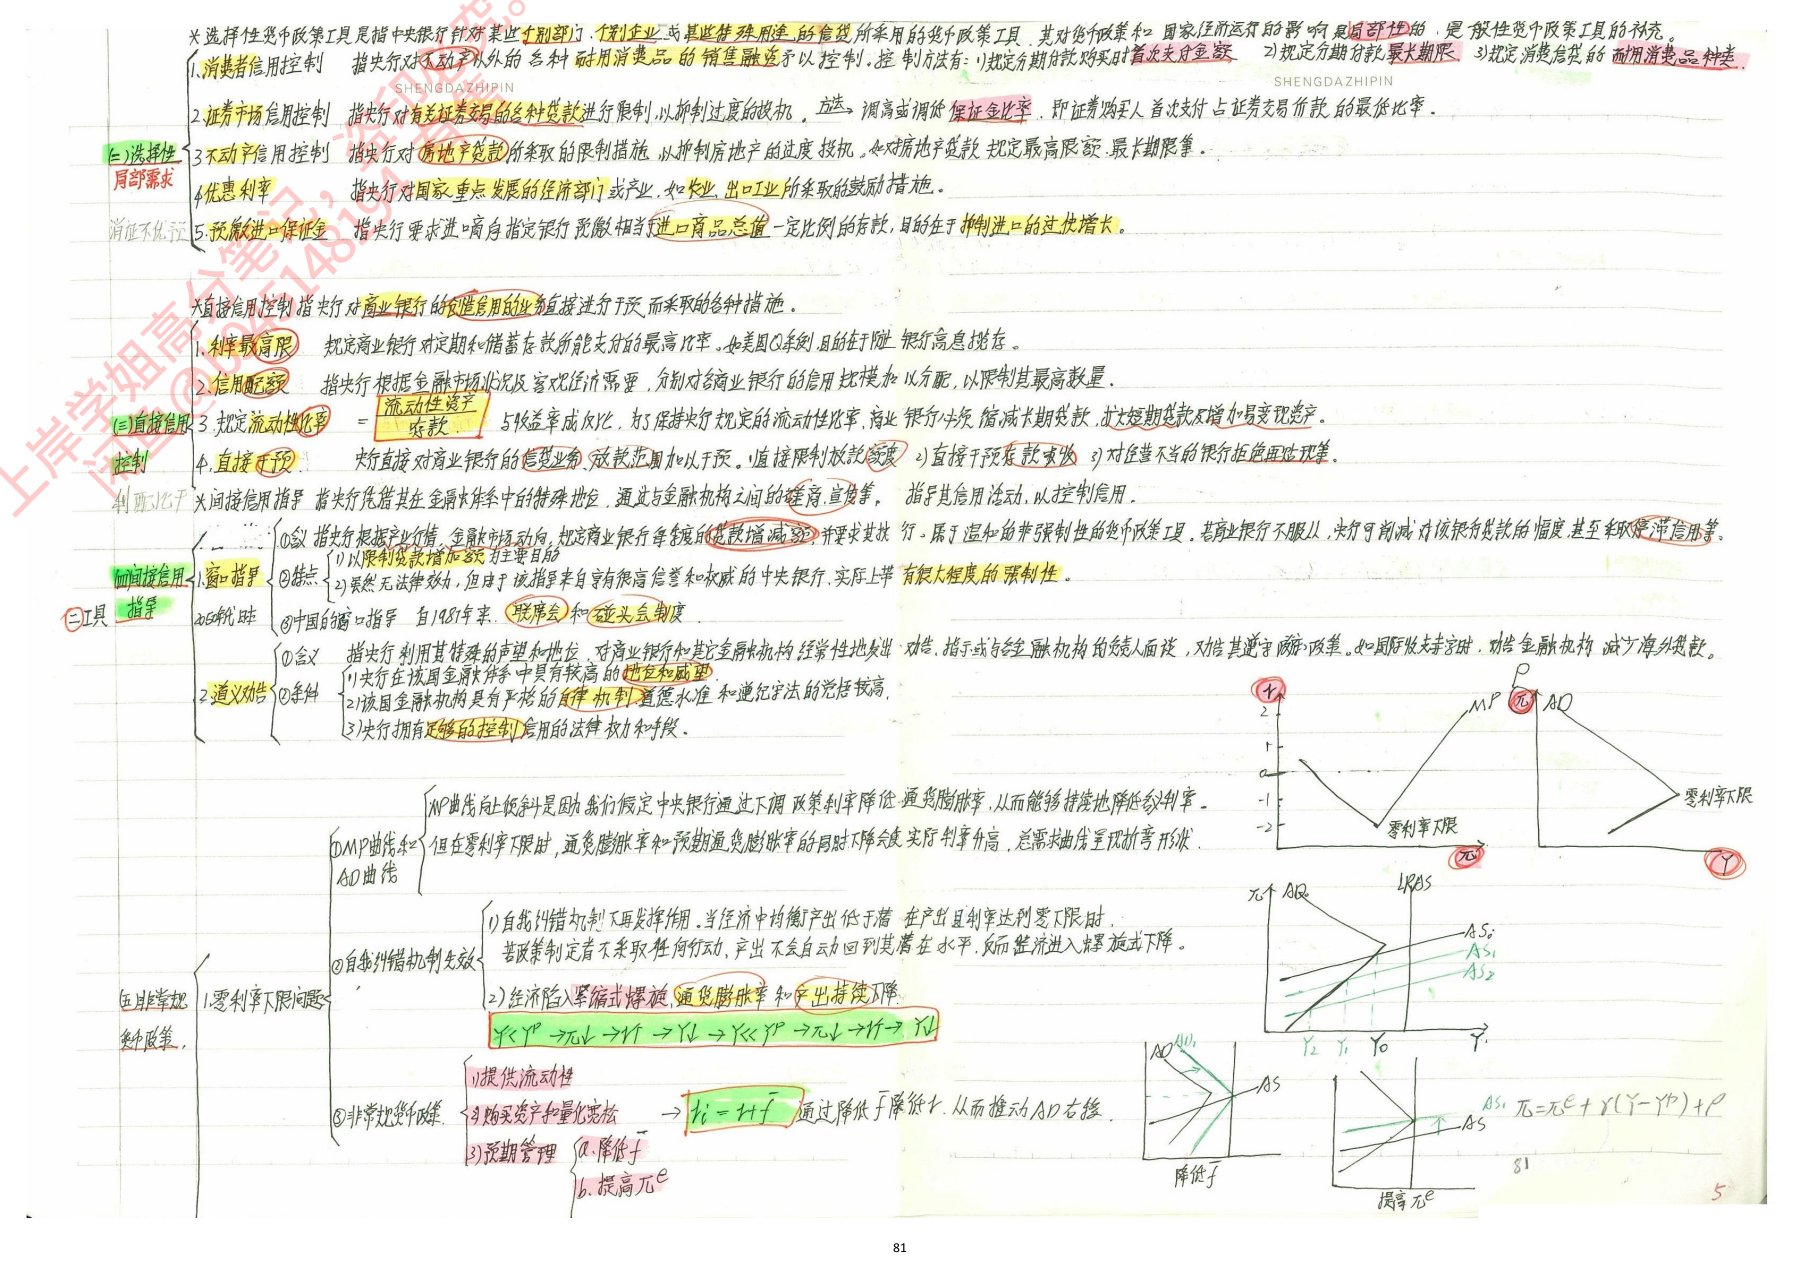 *选择性货币政策工具是指中央银行针对某些个别部门、个别企业或某些特殊用途的信贷所采用的货币政策工具,其对货币政策和国家经济运行的影响是局部性的,是一般性货币政策工具的补充。
1.消费者信用控制 指央行对不动产以外的各种耐用消费品的销售融资予以控制。控制方法有:1)规定分期付款购买时首次支付金额 2)规定分期付款最长期限 3)规定消费信贷的耐用消费品种类.
SHENGDAZHIPIN SHENGDAZHIPIN
2.证券市场信用控制 指央行对有关证券交易的各种贷款进行限制,以抑制过度的投机。方法→调高或调低保证金比率,即证券购买人首次支付占证券交易价款的最低比率。
(二)选择性
局部需求
3.不动产信用控制 指央行对房地产贷款所采取的限制措施,以抑制房地产的过度投机。如对房地产贷款规定最高限额、最长期限等。
4.优惠利率 指央行对国家重点发展的经济部门或产业,如农业、出口工业所采取的鼓励措施。
消证不优预
5.预缴进口保证金 指央行要求进口商向指定银行预缴相当于进口商品总值一定比例的存款,目的在于抑制进口的过快增长。
*直接信用控制指央行对商业银行的创造信用的业务直接进行干预而采取的各种措施。
1.利率最高限 规定商业银行对定期和储蓄存款所能支付的最高比率。如美国Q条例,目的在于防止银行高息揽存。
2.信用配额 指央行根据金融市场状况及客观经济需要,分别对各商业银行的信用规模加以分配,以限制其最高数量。
(三)直接信用
控制
3.规定流动性比率 = 流动性资产
存款
与收益率成反比,为了保持央行规定的流动性比率,商业银行必须缩减长期贷款,扩大短期贷款及增加易变现资产。
4.直接干预. 央行直接对商业银行的信贷业务、放款范围加以干预。1)直接限制放款额度 2)直接干预存款吸收 3)对经营不当的银行拒绝再贴现等。
利配比干
*间接信用指导 指央行凭借其在金融体系中的特殊地位,通过与金融机构之间的磋商、宣传等,指导其信用活动,以控制信用。
(四)间接信用
指导
1.窗口指导
①含义 指央行根据产业行情、金融市场动向,规定商业银行每季度的贷款增减额,并要求其执行。属于温和的非强制性的货币政策工具。若商业银行不服从,央行可削减对该银行贷款的幅度,甚至采取停滞信用等。
②特点
1)以限制贷款增加额为主要目的
2)虽然无法律效力,但由于该指导来自享有很高信誉和权威的中央银行,实际上带有很大程度的强制性。
二工具
20 50年代日本
③中国的窗口指导 自1987年来,联席会和碰头会制度
2.道义劝告
①含义 指央行利用其特殊的声望和地位,对商业银行和其它金融机构经常性地发出劝告、指示或与各金融机构的负责人面谈,劝告其遵守政策。如国际收支赤字时,劝告金融机构减少海外贷款。
②条件
1)央行在该国金融体系中具有较高的地位和威望.
2)该国金融机构具有严格的自律机制,道德水准和遵纪守法的觉悟较高.
3)央行拥有足够的控制信用的法律权力和手段。
r
2
1
0
-1
-2
MP
零利率下限
π
P
π
AD
零利率下限
Y
(五)非常规
货币政策.
1.零利率下限问题
①MP曲线和
AD曲线
MP曲线向上倾斜是因为我们假定中央银行通过下调政策利率降低通货膨胀率,从而能够持续地降低实际利率。
但在零利率下限时,通货膨胀率和预期通货膨胀率的同时下降会使实际利率升高,总需求曲线呈现折弯形状.
②自我纠错机制失效
1)自我纠错机制不再发挥作用.当经济中均衡产出低于潜在产出且利率达到零下限时,
若政策制定者不采取任何行动,产出不会自动回到其潜在水平,反而经济进入螺旋式下降。
2)经济陷入紧缩式螺旋,通货膨胀率和产出持续下降.
Y<Yᵖ→π↓→r↑→Y↓→Y<<Yᵖ→π↓→r↑→Y↓
③非常规货币政策.
1)提供流动性
2)购买资产和量化宽松
3)预期管理
→ rᵢ=r+f̄ 通过降低f̄降低r,从而推动AD右移.
a.降低f̄
b.提高πᵉ
π AD₀ LRAS
AS₀
AS₁
AS₂
Y₂ Y₁ Y₀ Y
AD AD₁
AS
降低f̄
AS₁
AS
提高πᵉ
π=πᵉ+γ(Y-Yᵖ)+ρ
81
5
81